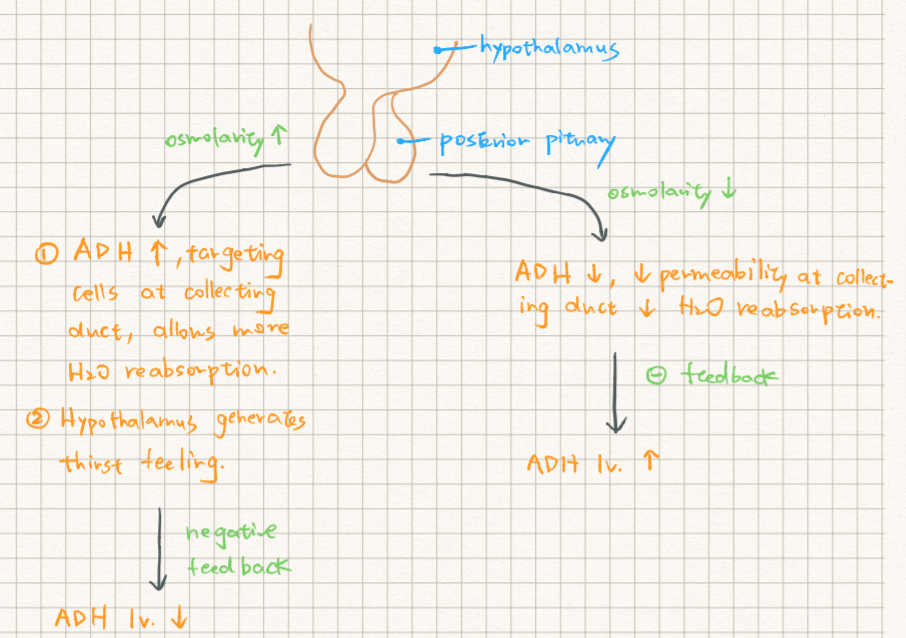 hypothalamus
posterior pitnary
osmolarity ↑
osmolarity ↓
① ADH ↑, targeting
cells at collecting
duct, allows more
H2O reabsorption.
② Hypothalamus generates
thirst feeling.
negative
feedback
ADH lv. ↓
ADH ↓, ↓ permeability at collect-
ing duct ↓ H2O reabsorption.
⊖ feedback
ADH lv. ↑